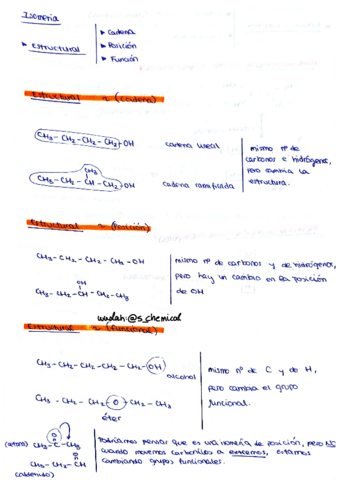 Isomería
▸ Estructural
▸ Cadena
▸ Posición
▸ Función
Estructural ~ (cadena)
CH₃-CH₂-CH₂-CH₂-OH cadena lineal
CH₃
CH₃-CH₂-CH-CH₂-OH cadena ramificada
mismo nº de
carbonos e hidrógenos,
pero cambia la
estructura.
Estructural ~ (posición)
CH₃-CH₂-CH₂-CH₂-CH₂-OH
OH
CH₃-CH₂-CH-CH₂-CH₂-CH₃
mismo nº de carbonos y de hidrógenos,
pero hay un cambio en la posición
de OH
wuolah:@s_chemical
Estructural ~ (funcional)
CH₃-CH₂-CH₂-CH₂-CH₂-OH
alcohol
CH₃-CH₂-CH₂-O-CH₂-CH₃
éter
mismo nº de C y de H,
pero cambia el grupo
funcional.
O
(cetona) CH₃-C-CH₃
CH₃-CH₂-CH
(aldehído)
Podríamos pensar que es una isomería de posición, pero NO
cuando movemos carbonilos a extremos, estamos
cambiando grupos funcionales.